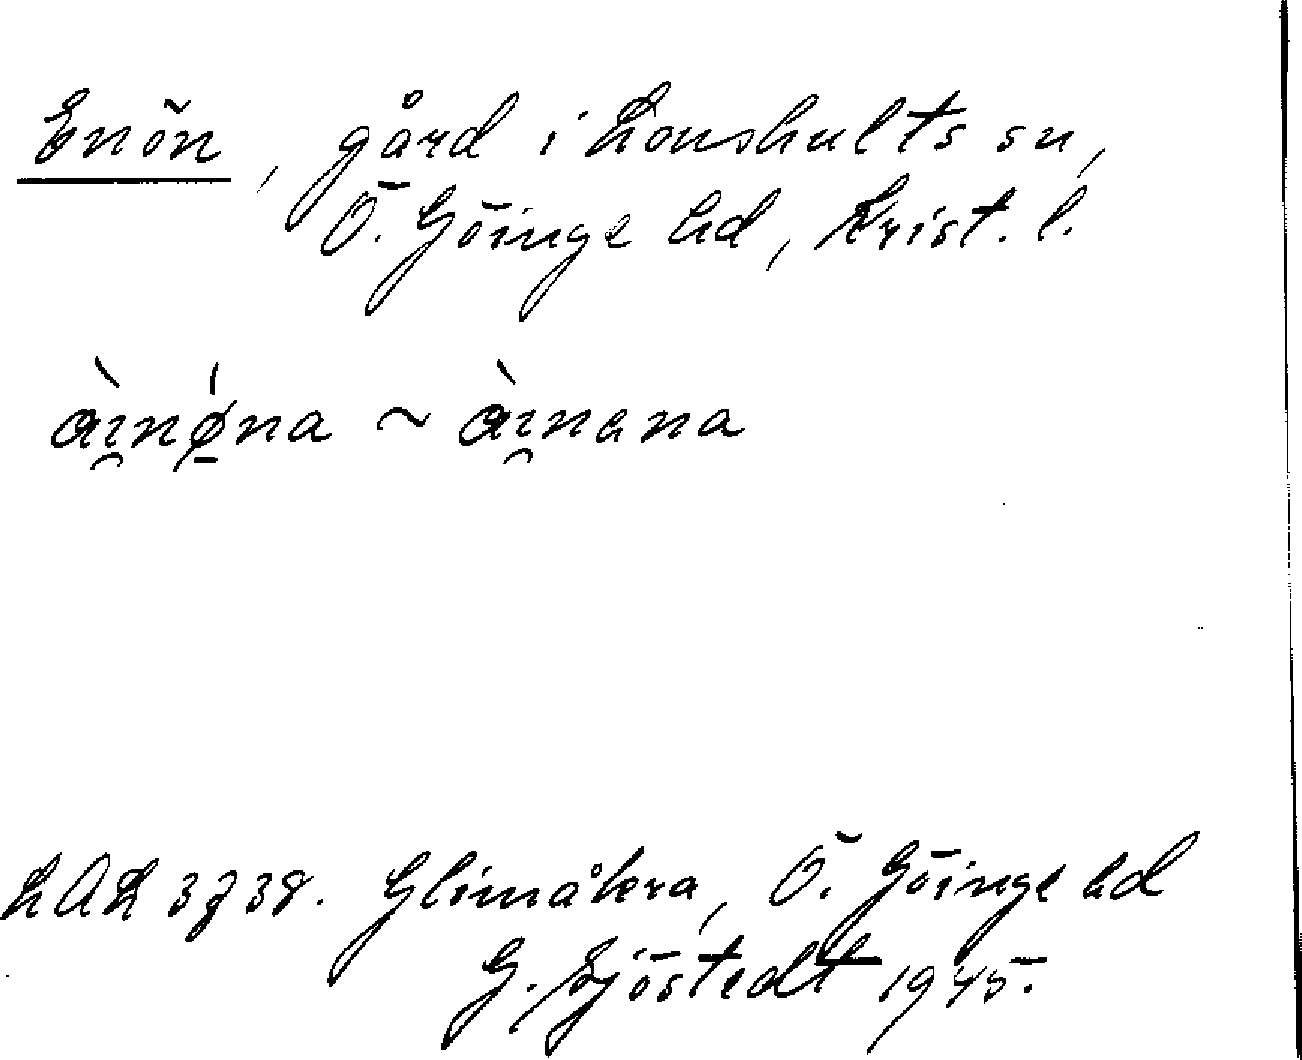 Enön, gård i Lönshults sn,
Ö. Göinge hd, Krist. l.
àɪnǿna ~ àɪnana
LAL 3738. Glimåkra, Ö. Göinge hd
G. Sjöstedt 1945.